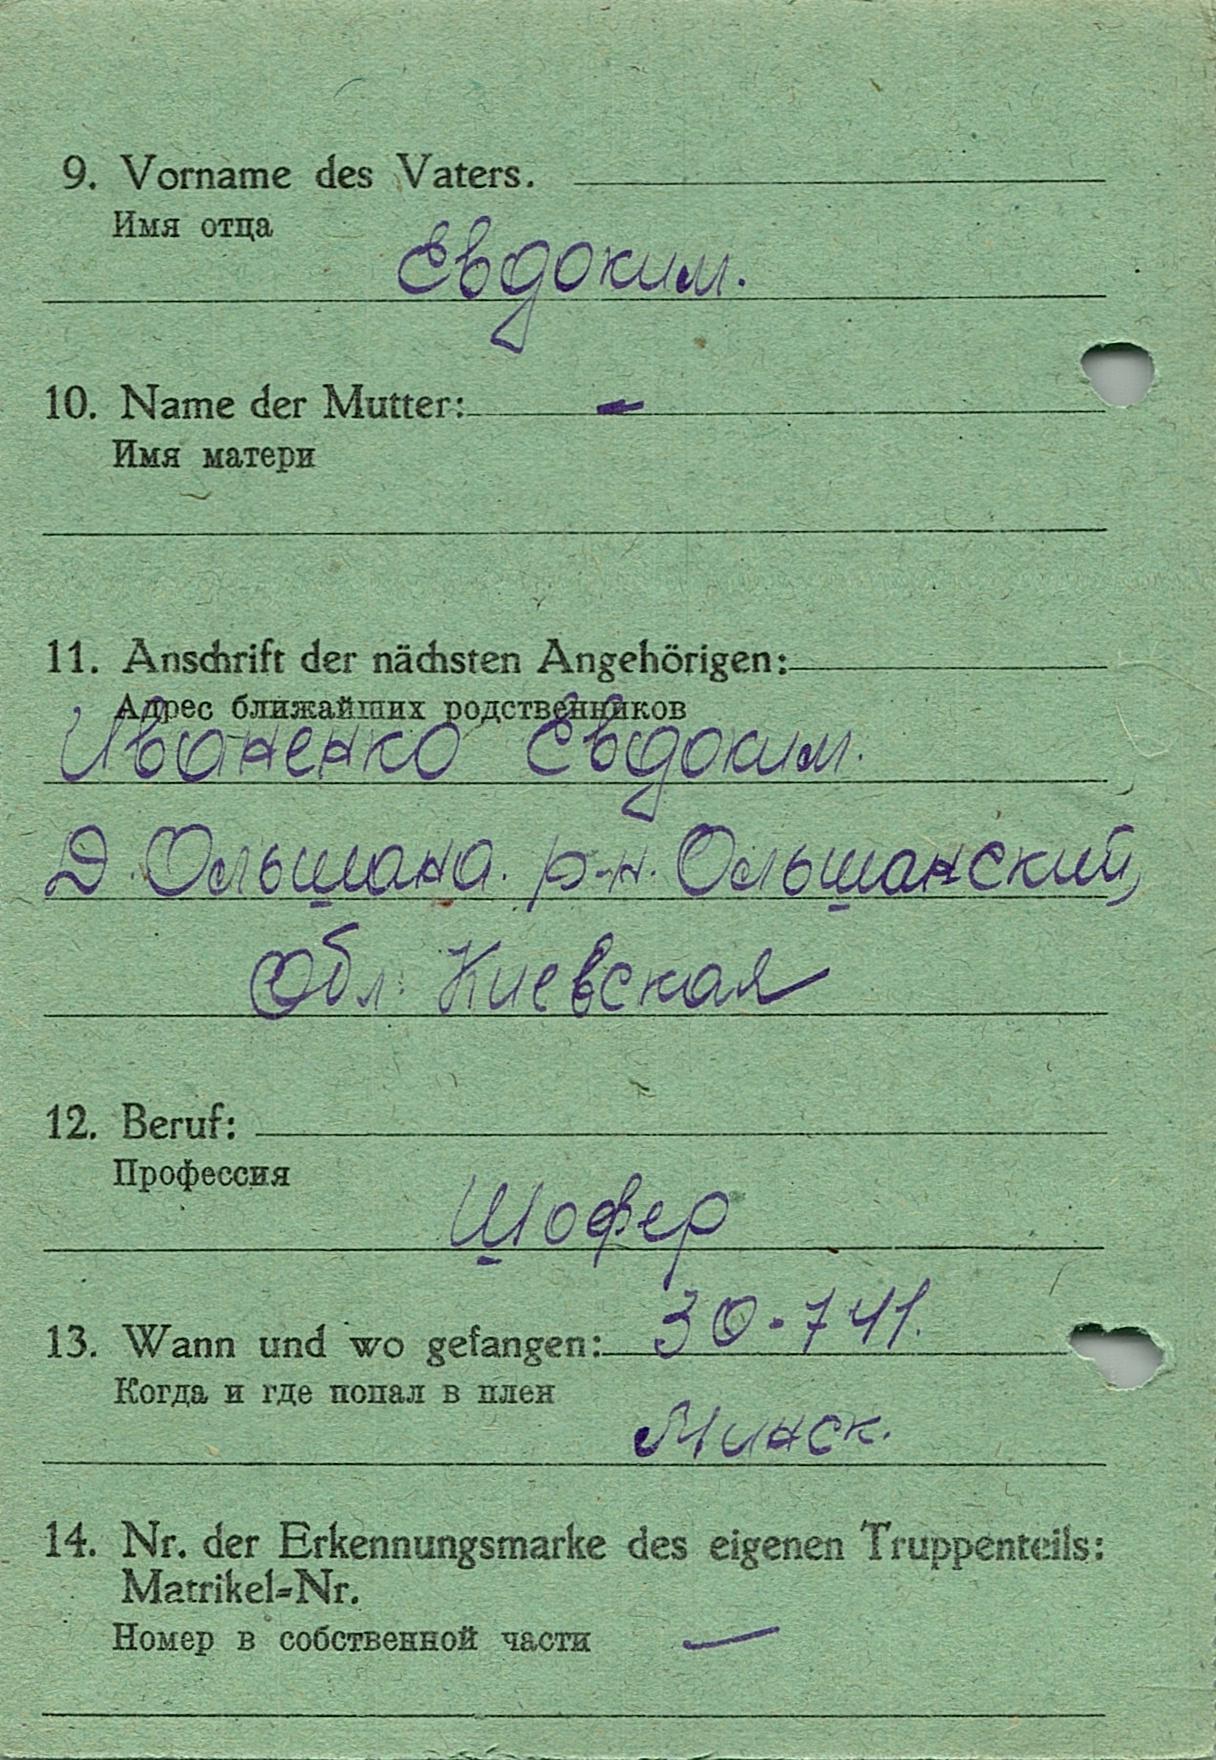 9. Vorname des Vaters.
Имя отца
Евдоким.
10. Name der Mutter: -
Имя матери
11. Anschrift der nächsten Angehörigen:
Адрес ближайших родственников
Иваненко Евдоким.
Д. Ольшана. р-н. Ольшанский,
Обл. Киевская
12. Beruf:
Профессия
Шофер
13. Wann und wo gefangen: 30.7 41.
Когда и где попал в плен
Минск.
14. Nr. der Erkennungsmarke des eigenen Truppenteils:
Matrikel=Nr.
Номер в собственной части —